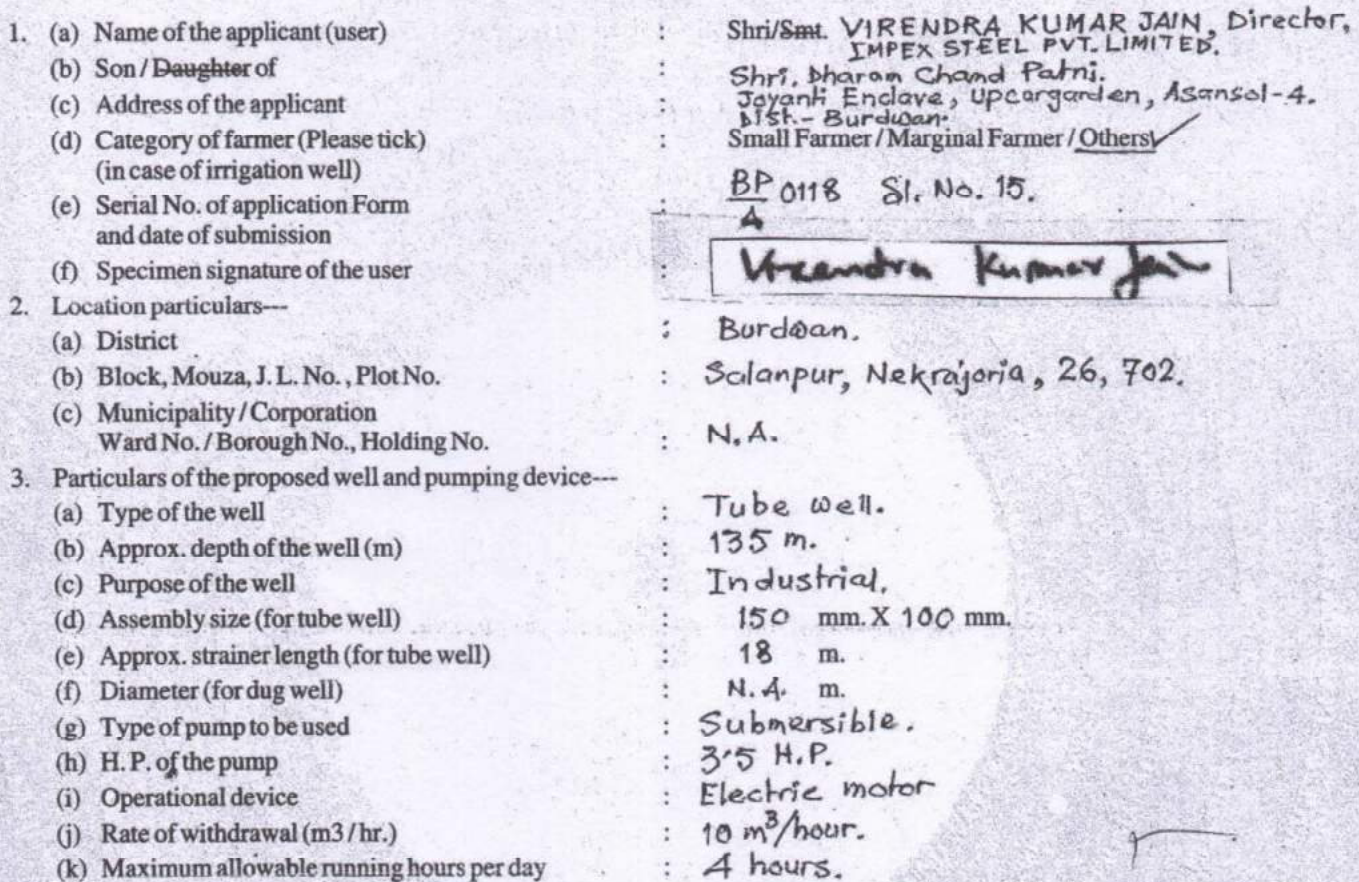 1. (a) Name of the applicant (user) : Shri/Smt. VIRENDRA KUMAR JAIN, Director,
IMPEX STEEL PVT. LIMITED.
(b) Son / Daughter of : Shri. Dharam Chand Patni.
(c) Address of the applicant : Jayanti Enclave, Upcargarden, Asansol-4.
Dist.- Burdwan.
(d) Category of farmer (Please tick) : Small Farmer / Marginal Farmer / Others ✓
(in case of irrigation well)
(e) Serial No. of application Form : BP/A 0118 Sl. No. 15.
and date of submission
(f) Specimen signature of the user : Virendra Kumar Jain
2. Location particulars---
(a) District : Burdwan.
(b) Block, Mouza, J. L. No. , Plot No. : Salanpur, Nekrajoria, 26, 702.
(c) Municipality / Corporation
Ward No. / Borough No., Holding No. : N.A.
3. Particulars of the proposed well and pumping device---
(a) Type of the well : Tube well.
(b) Approx. depth of the well (m) : 135 m.
(c) Purpose of the well : Industrial.
(d) Assembly size (for tube well) : 150 mm. X 100 mm.
(e) Approx. strainer length (for tube well) : 18 m.
(f) Diameter (for dug well) : N.A. m.
(g) Type of pump to be used : Submersible.
(h) H. P. of the pump : 3·5 H.P.
(i) Operational device : Electric motor
(j) Rate of withdrawal (m3 / hr.) : 10 m³/hour.
(k) Maximum allowable running hours per day : 4 hours.